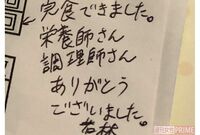 完食できました。
栄養師さん
調理師さん
ありがとう
ございました。
若林
週刊女性PRIME